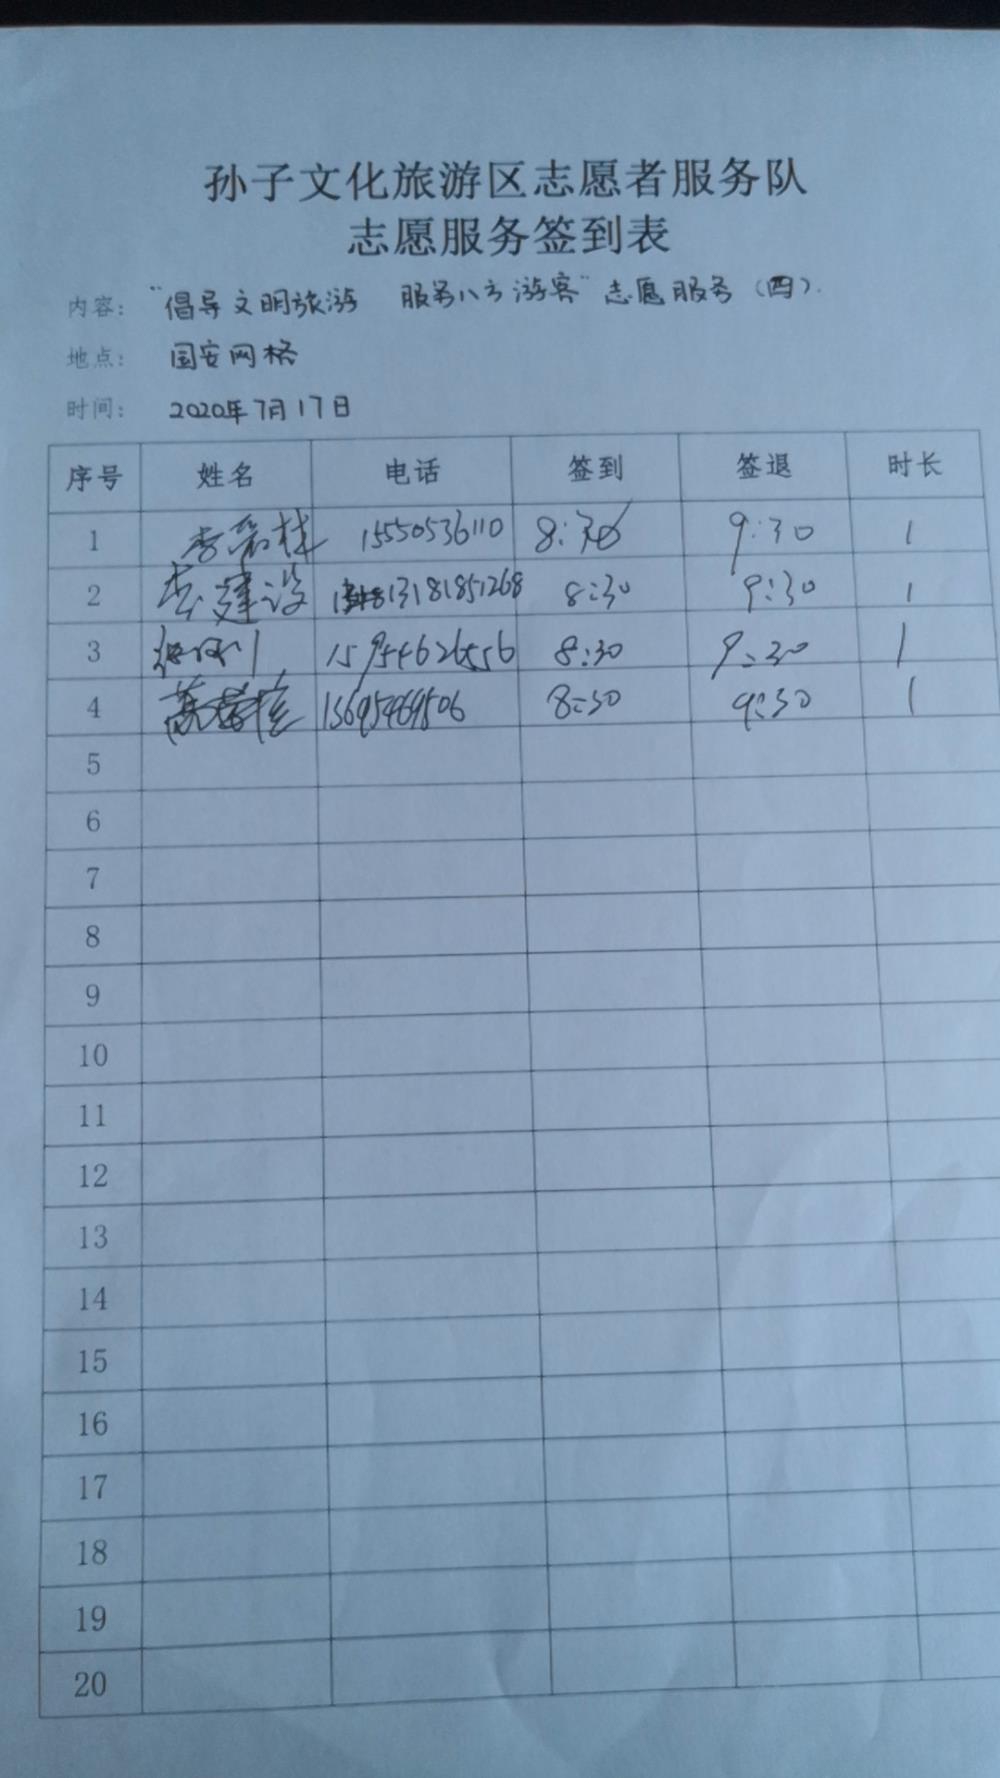 孙子文化旅游区志愿者服务队
志愿服务签到表
内容： “倡导文明旅游 服务八方游客”志愿服务（四）.
地点： 国安网格
时间： 2020年7月17日
序号 姓名 电话 签到 签退 时长
1 15550536110 8:30 9:30 1
2 李建设 13181851268 8:30 9:30 1
3 15954626556 8:30 9:30 1
4 13695469506 8:30 9:30 1
5
6
7
8
9
10
11
12
13
14
15
16
17
18
19
20